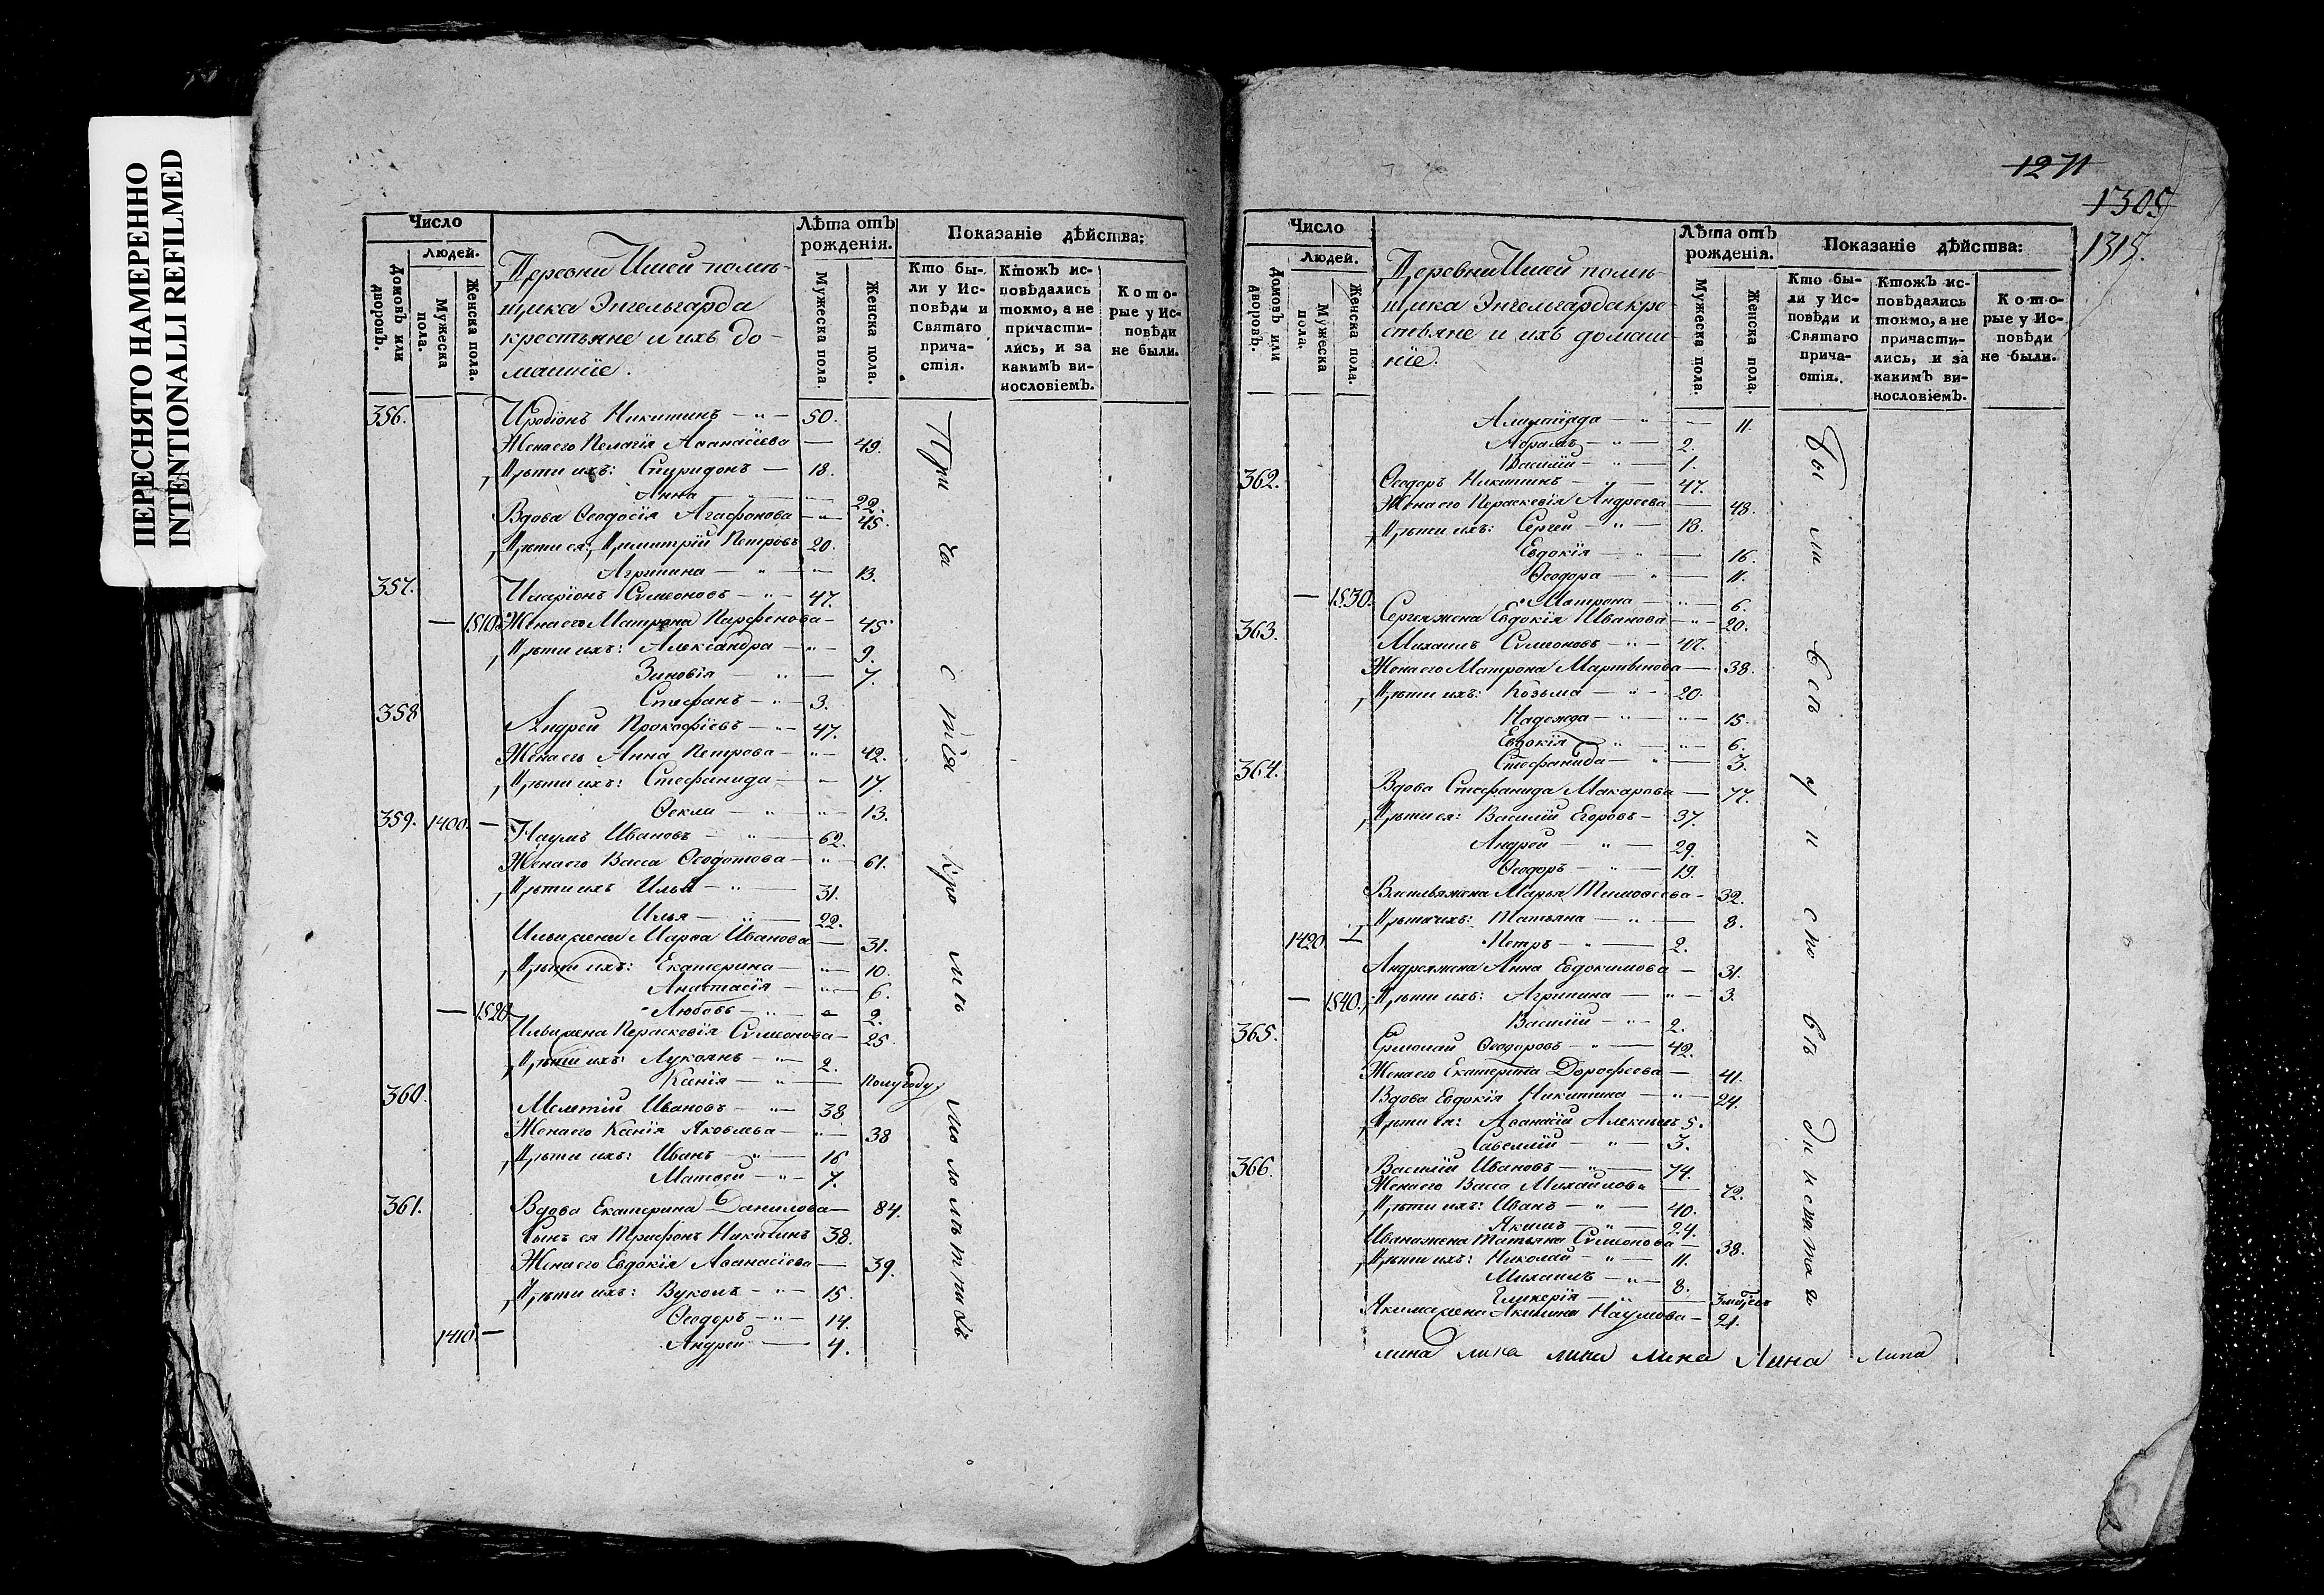 ПЕРЕСНЯТО НАМЕРЕННО
INTENTIONALLI REFILMED
Число
Людей.
Домовъ или дворовъ.
Мужеска пола.
Женска пола.
Деревни Ишей помѣ-
щика Энгельгарда
крестьяне и ихъ до-
машніе.
Лѣта отъ рожденія.
Мужеска пола.
Женска пола.
Показаніе дѣйства:
Кто бы-
ли у Ис-
повѣди и
Святаго
прича-
стія.
Ктожъ ис-
повѣдались
токмо, а не
причасти-
лись, и за
какимъ ви-
нословіемъ.
Кото-
рые у Ис-
повѣди
не были.
356. Иродіонъ Никитинъ — 50.
Жена его Пелагія Аѳанасіева — 49.
Дѣти ихъ: Спиридонъ — 18.
Анна — 22.
Вдова Ѳеодосія Агафонова — 45.
Дѣти ея: Димитрій Петровъ 20.
Агрипина — 13.
357. Иларіонъ Симеоновъ — 47.
— 1510. Жена его Матрона Парфенова — 45
Дѣти ихъ: Александра — 9.
Зиновія — 7.
Стефанъ — 3.
358 Андрей Прокофіевъ — 47.
Жена его Анна Петрова — 42.
Дѣти ихъ: Стефанида — 17.
Ѳекла — 13.
359. 1400. — Наумъ Ивановъ — 62.
Жена его Васса Ѳеодотова — 61.
Дѣти ихъ Илья — 31.
Илья — 22.
Ильи жена Марѳа Иванова — 31.
Дѣти ихъ: Екатерина — 10.
Анастасія — 6.
— 1520 Любовь — 2.
Ильи жена Параскевія Симеонова — 25
Дѣти ихъ: Лукіянъ — 2.
Ксенія — полугоду
360. Мелетій Ивановъ — 38
Жена его Ксенія Яковлева — 38
Дѣти ихъ: Иванъ — 16
Матѳей — 7.
361. Вдова Екатерина Данилова — 84.
Сынъ ея Трифонъ Никитинъ 38.
Жена его Евдокія Аѳанасіева — 39.
Дѣти ихъ: Вуколъ — 15.
Ѳеодоръ — 14.
1410. — Андрей — 4.
При ча стія кро мѣ мо ло лѣтнихъ
1271
1305
1315.
Число
Людей.
Домовъ или дворовъ.
Мужеска пола.
Женска пола.
Деревни Ишей помѣ-
щика Энгельгарда кре
стьяне и ихъ домаш-
ніе.
Лѣта отъ рожденія.
Мужеска пола.
Женска пола.
Показаніе дѣйства:
Кто бы-
ли у Ис-
повѣди и
Святаго
прича-
стія.
Ктожъ ис-
повѣдались
токмо, а не
причасти-
лись, и за
какимъ ви-
нословіемъ.
Кото-
рые у Ис-
повѣди
не были.
Алимпіада — 11.
Абрамъ — 2.
Василій — 1.
362. Ѳеодоръ Никитинъ — 47.
Жена его Параскевія Андреева — 48.
Дѣти ихъ: Сергей — 18.
Евдокія — 16.
Ѳеодора — 11.
— 1530. Матрона — 6.
Сергея жена Евдокія Иванова — 20.
363. Михаилъ Симеоновъ — 47.
Жена его Матрона Мартынова — 38.
Дѣти ихъ: Козьма — 20.
Надежда — 15.
Евдокія — 6.
Стефанида — 3.
364. Вдова Стефанида Макарова — 77.
Дѣти ея: Василій Егоровъ — 37.
Андрей — 29.
Ѳеодоръ — 19.
Василья жена Марья Тимоѳеева — 32.
Дѣти ихъ: Татьяна — 8.
1420. — Петръ — 2.
Андрея жена Анна Евдокимова — 31.
— 1540. Дѣти ихъ: Агрипина — 3.
Василій — 2.
365. Ермолай Ѳеодоровъ — 42.
Жена его Екатерина Дорофеева — 41.
Вдова Евдокія Никитина — 24.
Дѣти ея: Аѳанасій Алексѣевъ 5.
Савелій — 3.
366. Василій Ивановъ — 74.
Жена его Васса Михайлова — 72.
Дѣти ихъ: Иванъ — 40.
Якимъ — 24.
Ивана жена Татьяна Симеонова — 38.
Дѣти ихъ: Николай — 11.
Михаилъ — 8.
Гликерія —
Якима жена Акилина Наумова — 21.